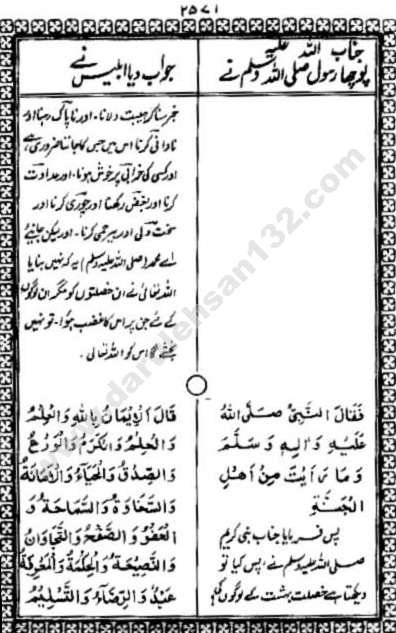 ۲۵۷۱
جناب اللہ علیہ
پوچھا رسول صلی اللہ وسلم نے
جواب دیا ابلیس نے
دلانا۔ اور ناپاک رہنا اور
نادانی کرنا اس میں جس کا جاننا ضروری ہے
اور کسی کی خرابی پر خوش ہونا۔ اور عداوت
کرنا اور بغض رکھنا اور چوری کرنا اور
سخت دلی اور بیرحمی کرنا۔ اور لیکن جانیئے
اے محمد (صلی اللہ علیہ وسلم) یہ کہ نہیں بنایا
اللہ تعالیٰ نے ان خصلتوں کو مگر ان لوگوں
کے لئے جن پر اس کا غضب ہوا۔ تو نہیں
اس کو اللہ تعالیٰ۔
فَقَالَ النَّبِيُّ صَلَّى اللهُ
عَلَيْهِ وَاٰلِهٖ وَسَلَّمَ
وَمَا رَأَيْتَ مِنْ اَهْلِ
الْجَنَّةِ
پس فرمایا جناب نبی کریم
صلی اللہ علیہ وسلم نے، پس کیا تو
دیکھتا ہے خصلت بہشت کے لوگوں کی؟
قَالَ الْاِيْمَانُ بِاللهِ وَالْعِلْمُ
وَالْحِلْمُ وَالْكَرَمُ وَالْوَرَعُ
وَالصِّدْقُ وَالْحَيَاءُ وَالْاَمَانَةُ
وَالسَّخَاوَةُ وَالسَّمَاحَةُ وَ
الْعَفْوُ وَالصَّفْحُ وَالتَّجَاوُزُ
وَالنَّصِيْحَةُ وَالْحِكْمَةُ وَالْمَعْرِفَةُ
وَالرِّضَاءُ وَالتَّسْلِيْمُ
www.darulehsan132.com